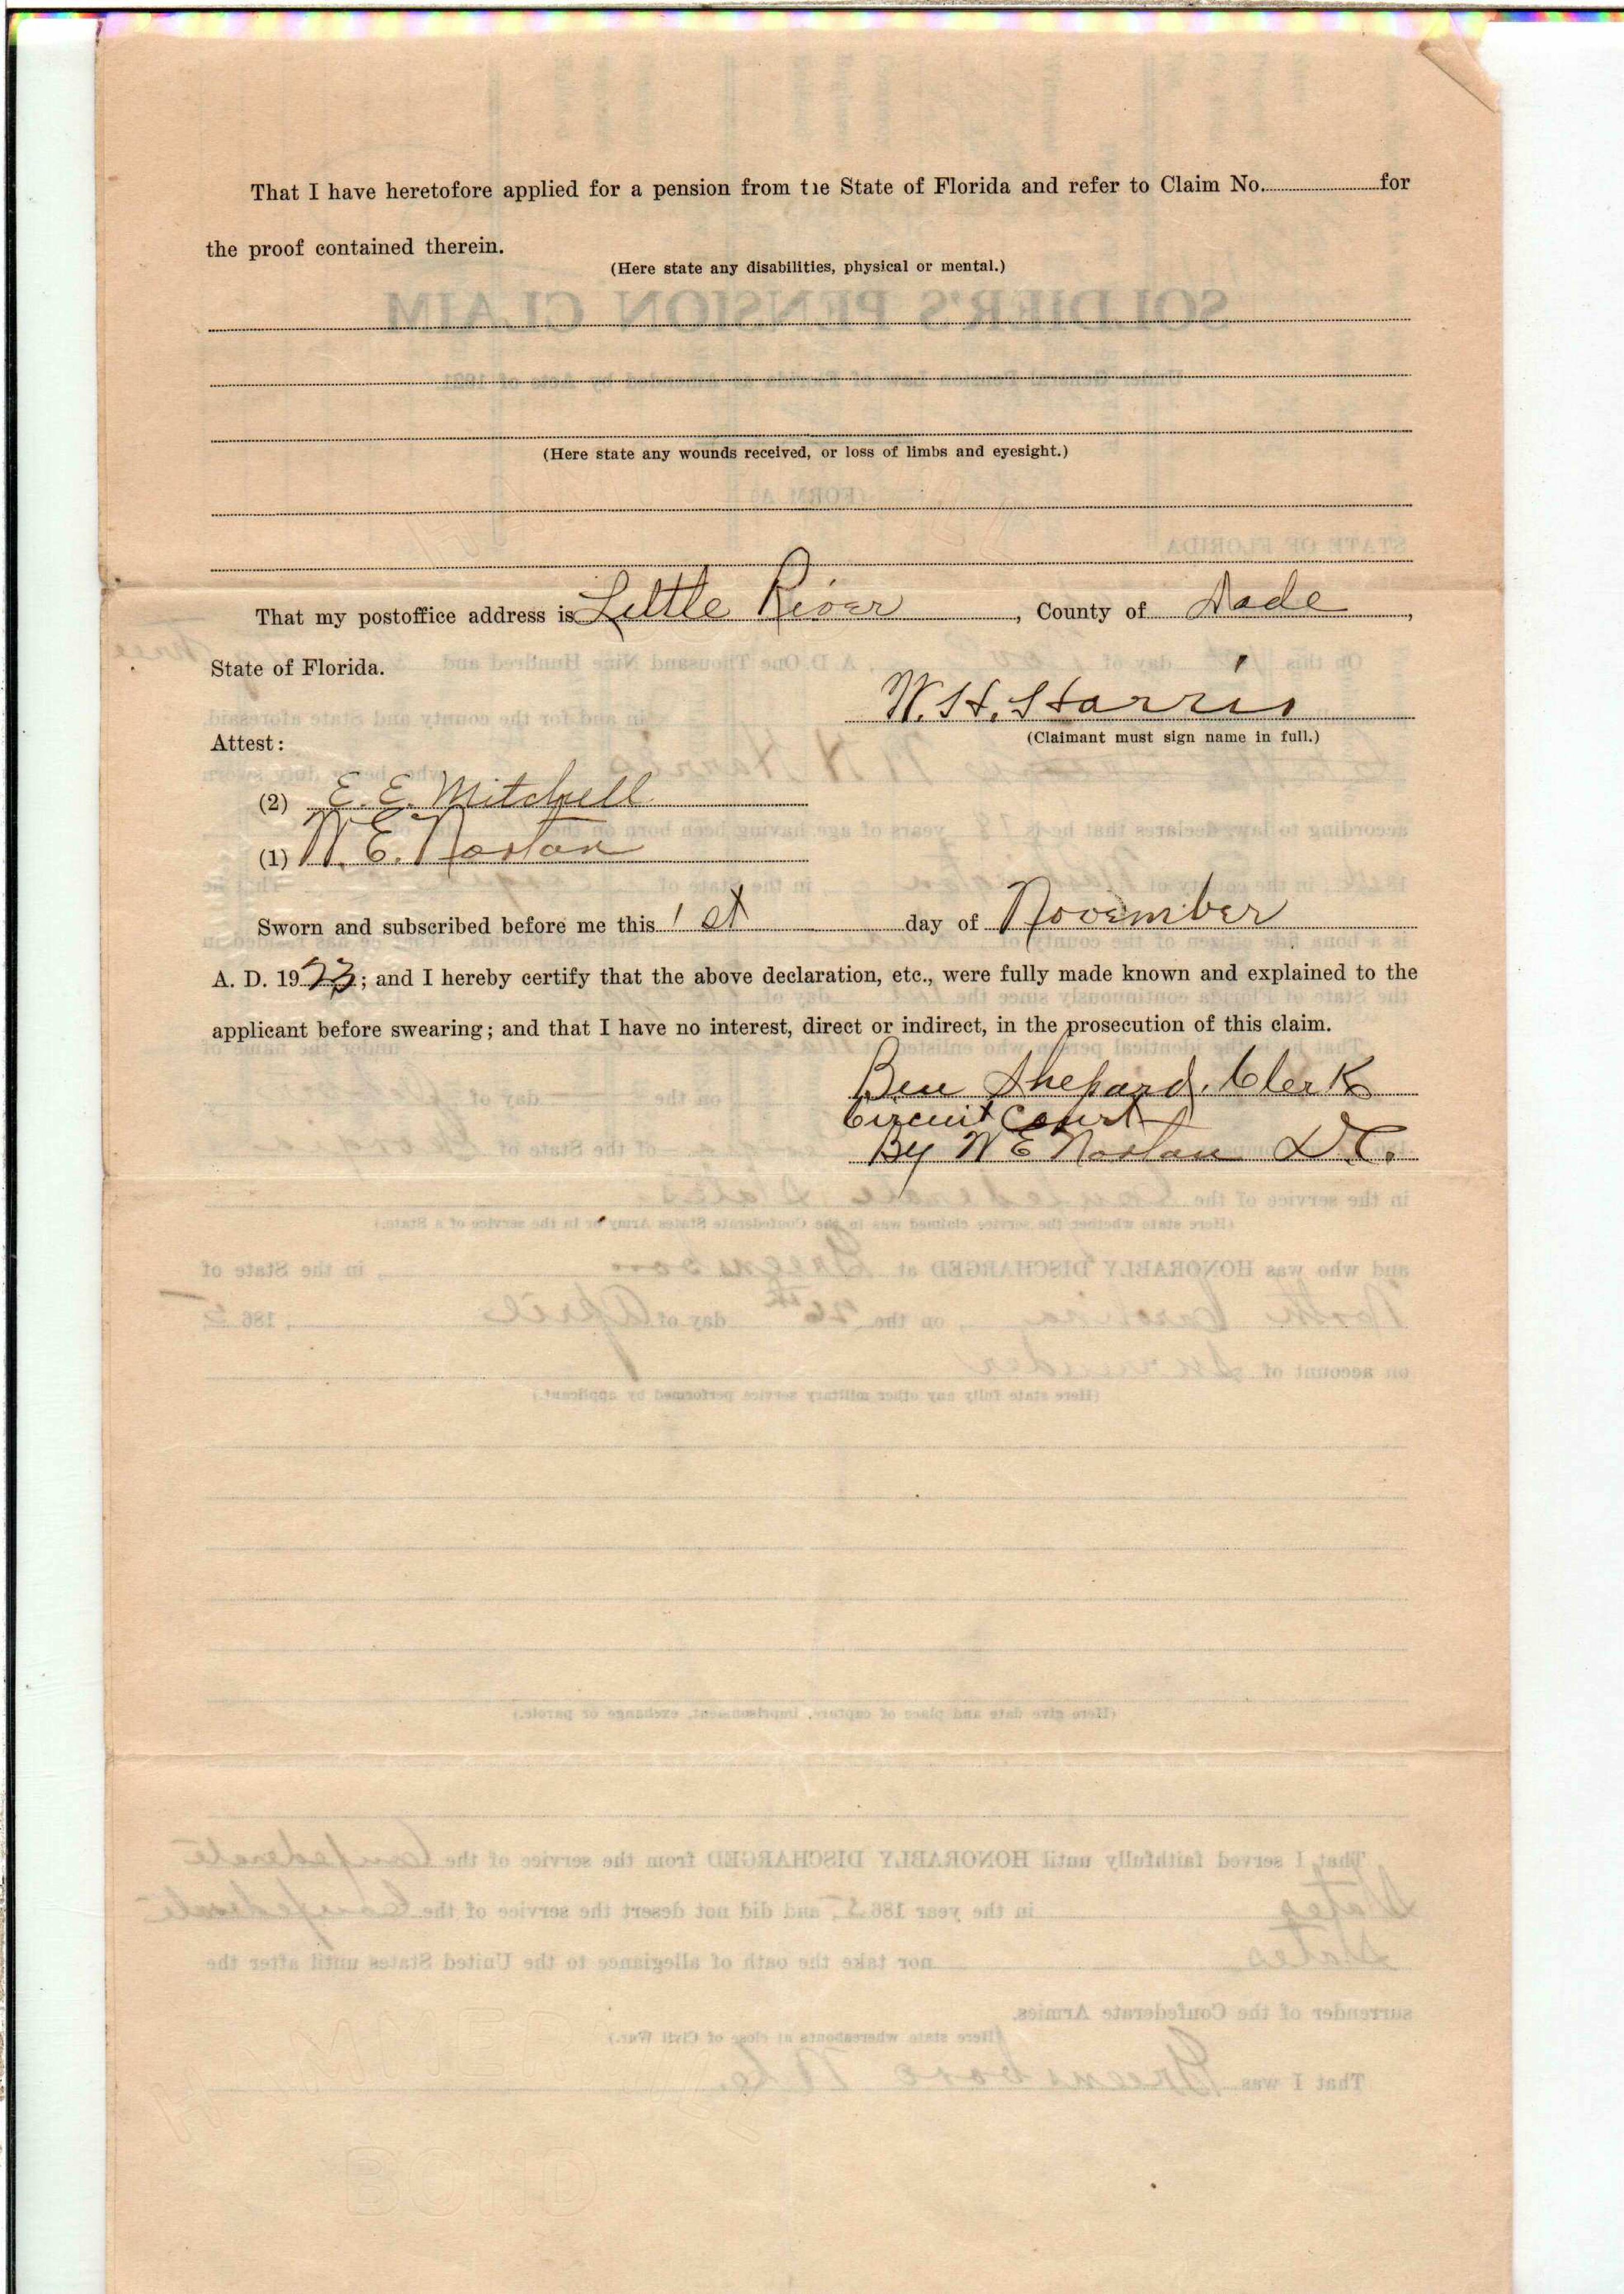 That I have heretofore applied for a pension from tie State of Florida and refer to Claim No. for
the proof contained therein.
(Here state any disabilities, physical or mental.)
(Here state any wounds received, or loss of limbs and eyesight.)
That my postoffice address is Little River, County of Dade,
State of Florida.
W. H. Harris
(Claimant must sign name in full.)
Attest:
(2) E. E. Mitchell
(1) W. E. Norton
Sworn and subscribed before me this 1st day of November
A. D. 1923; and I hereby certify that the above declaration, etc., were fully made known and explained to the
applicant before swearing; and that I have no interest, direct or indirect, in the prosecution of this claim.
Ben Shepard, Clerk
Circuit Court
By W E Norton D.C.